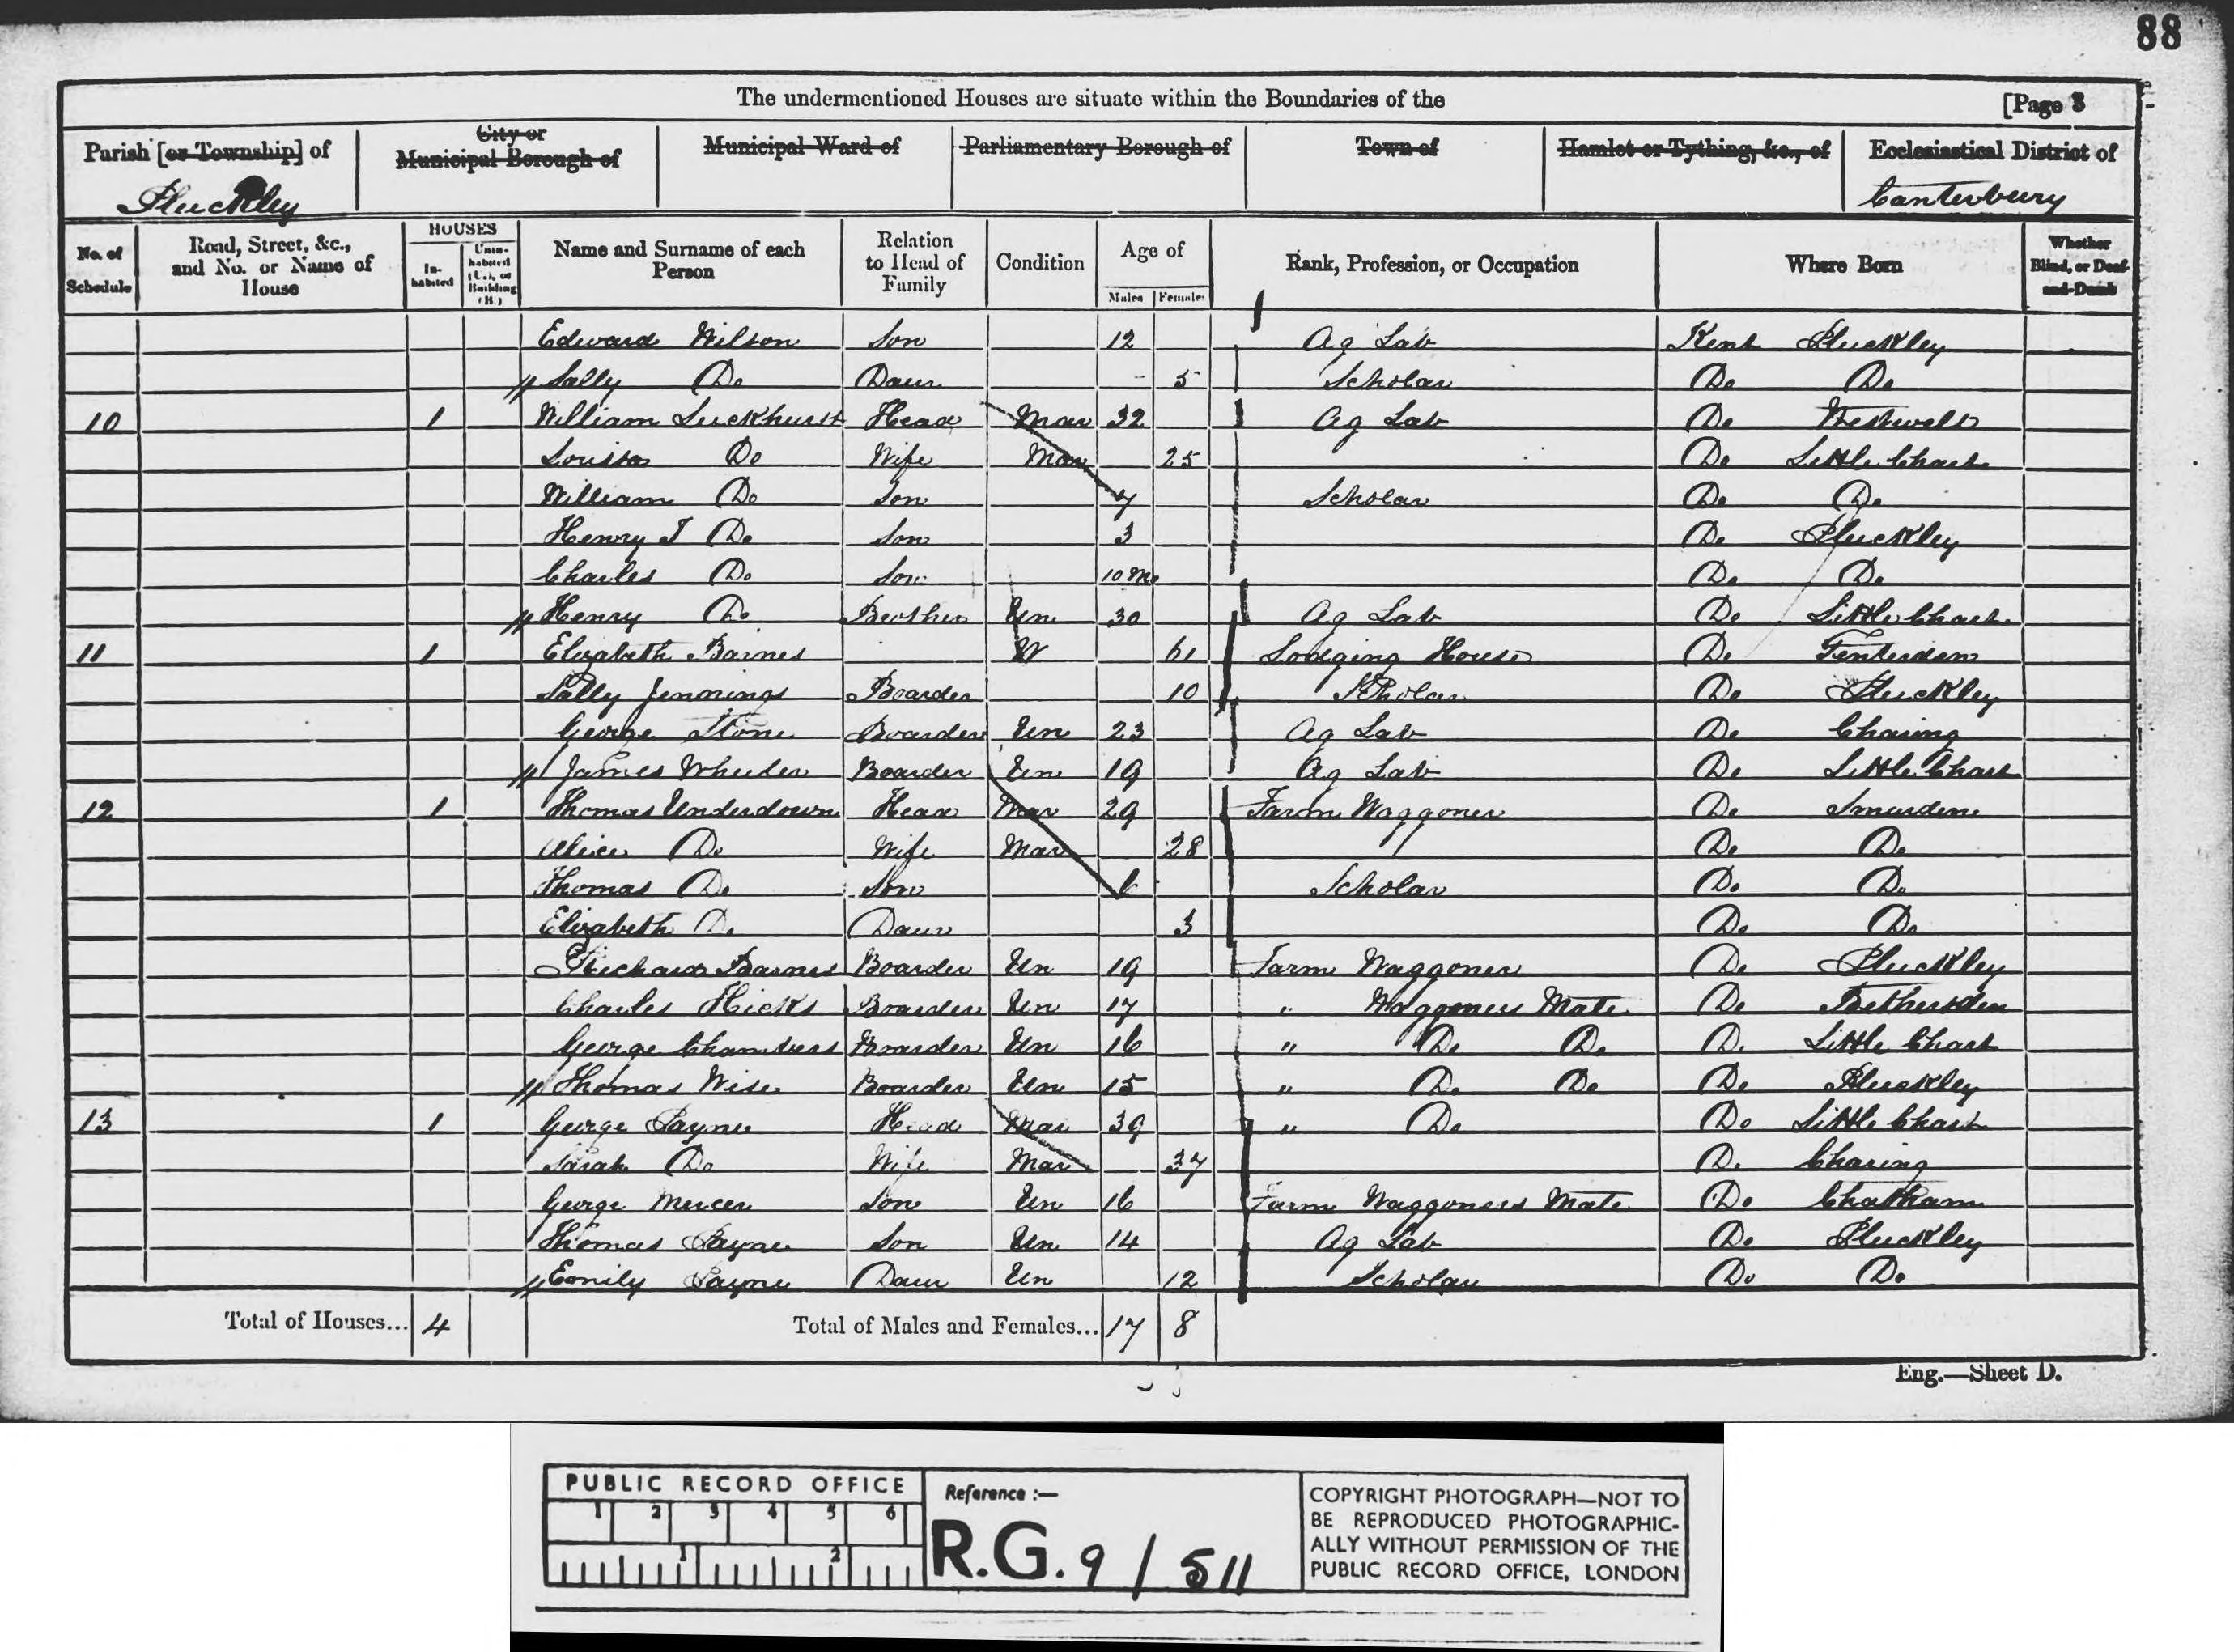 88
The undermentioned Houses are situate within the Boundaries of the [Page 3
Parish [or Township] of City or Municipal Borough of Municipal Ward of Parliamentary Borough of Town of Hamlet or Tything, &c., of Ecclesiastical District of
Pluckley Canterbury
No. of Schedule Road, Street, &c., and No. or Name of House HOUSES Inhabited Uninhabited (U.), or Building (B.) Name and Surname of each Person Relation to Head of Family Condition Age of Males Females Rank, Profession, or Occupation Where Born Whether Blind, or Deaf-and-Dumb
Edward Wilson Son 12 Ag Lab Kent Pluckley
Sally Do Daur 5 Scholar Do Do
10 1 William Luckhurst Head Mar 32 Ag Lab Do Westwell
Louisa Do Wife Mar 25 Do Little Chart
William Do Son 7 Scholar Do Do
Henry J Do Son 3 Do Pluckley
Charles Do Son 10 Mo Do Do
Henry Do Brother Un 30 Ag Lab Do Little Chart
11 1 Elizabeth Barnes W 61 Lodging House Do Tenterden
Sally Jennings Boarder 10 Scholar Do Pluckley
George Stone Boarder Un 23 Ag Lab Do Charing
James Wheeler Boarder Un 19 Ag Lab Do Little Chart
12 1 Thomas Underdown Head Mar 29 Farm Waggoner Do Smarden
Alice Do Wife Mar 28 Do Do
Thomas Do Son 6 Scholar Do Do
Elizabeth Do Daur 3 Do Do
Richard Barnes Boarder Un 19 Farm Waggoner Do Pluckley
Charles Hicks Boarder Un 17 " Waggoners Mate Do Bethersden
George Chambers Boarder Un 16 " Do Do Do Little Chart
Thomas Wise Boarder Un 15 " Do Do Do Pluckley
13 1 George Payne Head Mar 39 " Do Do Little Chart
Sarah Do Wife Mar 37 Do Charing
George Mercer Son Un 16 Farm Waggoners Mate Do Chatham
Thomas Payne Son Un 14 Ag Lab Do Pluckley
Emily Payne Daur Un 12 Scholar Do Do
Total of Houses... 4 Total of Males and Females... 17 8
Eng.—Sheet D.
PUBLIC RECORD OFFICE
1 2 3 4 5 6
1 2
Reference :—
R.G. 9 / 511
COPYRIGHT PHOTOGRAPH—NOT TO
BE REPRODUCED PHOTOGRAPHIC-
ALLY WITHOUT PERMISSION OF THE
PUBLIC RECORD OFFICE, LONDON